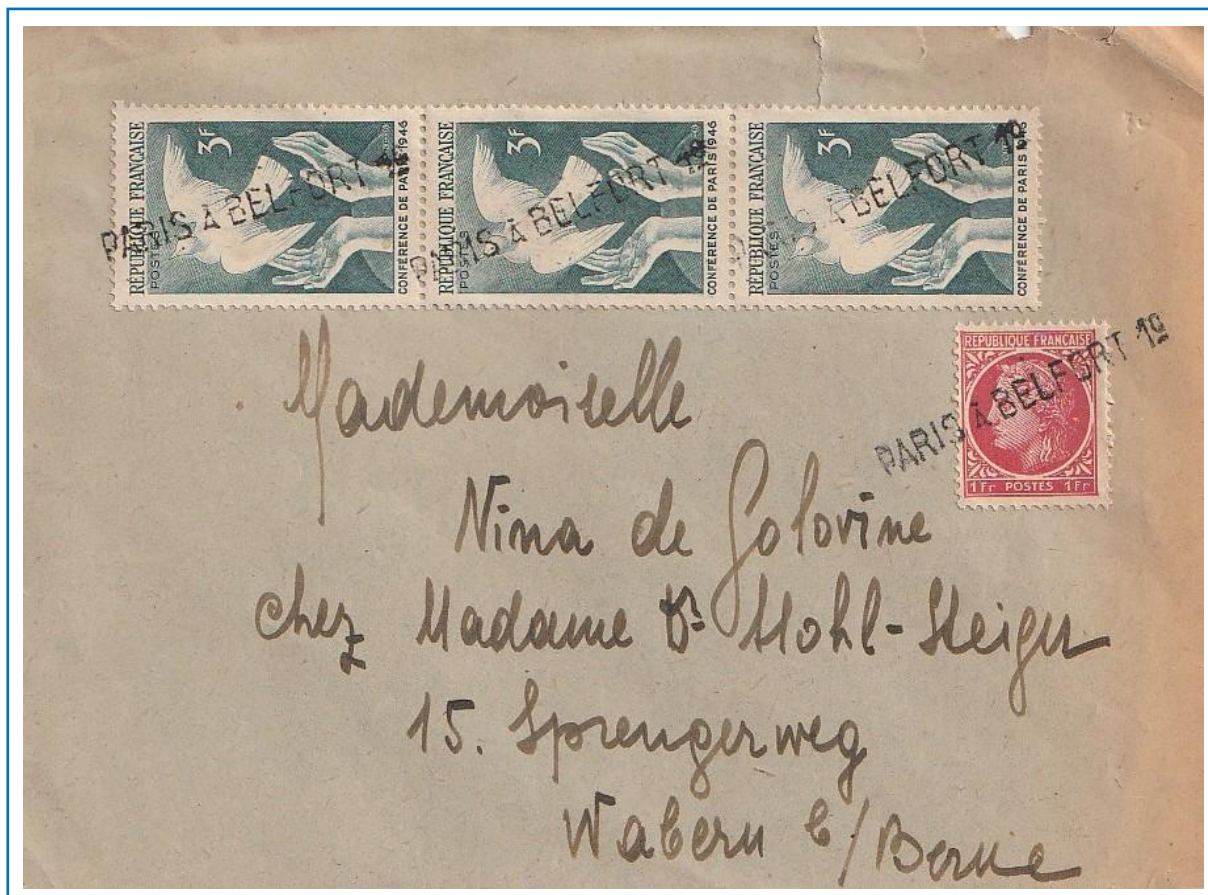 RÉPUBLIQUE FRANÇAISE
POSTES
3F
CONFÉRENCE DE PARIS 1946
PARIS À BELFORT 1º
RÉPUBLIQUE FRANÇAISE
POSTES
3F
CONFÉRENCE DE PARIS 1946
PARIS À BELFORT 1º
RÉPUBLIQUE FRANÇAISE
POSTES
3F
CONFÉRENCE DE PARIS 1946
À BELFORT 1º
REPUBLIQUE FRANÇAISE
1Fr POSTES 1Fr
PARIS À BELFORT 1º
Mademoiselle
Nina de Golovine
chez Madame Dr Hohl-Steiger
15. Sprengerweg
Wabern b/Berne